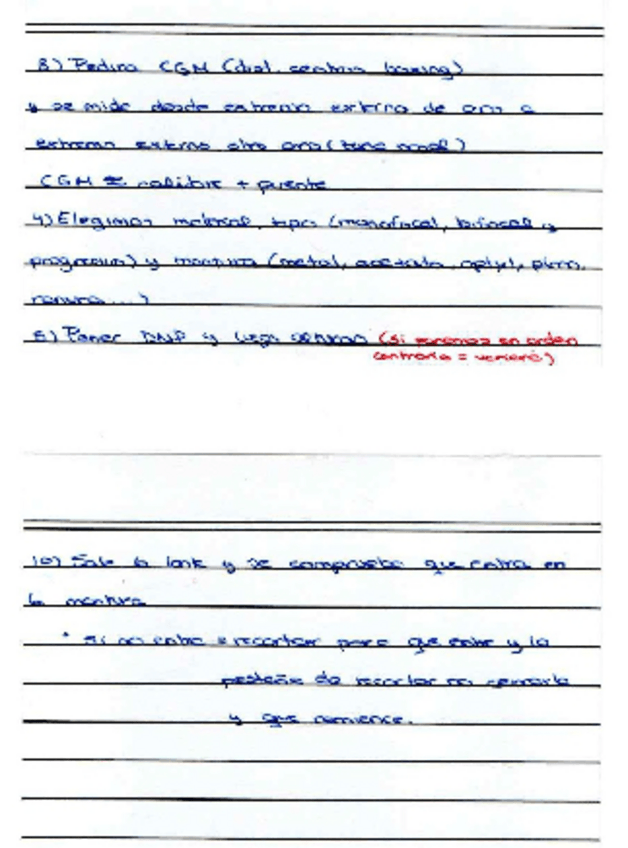 8) Pedirá CGM (dist. centros boxing)
y se mide desde extremo externo de aro a
extremo externo otro aro (zona nasal)
CGM = calibre + puente
4) Elegimos material, tipo (monofocal, bifocal y
progresivo) y montura (metal, acetato, optyl,
ranura...)
5) Poner DNP y luego alturas (si ponemos en orden
contrario =
10) Sale la lente y se comprueba que entra en
la montura
* si no entra recortar para que entre y la
pestaña de recortar
y que comience.